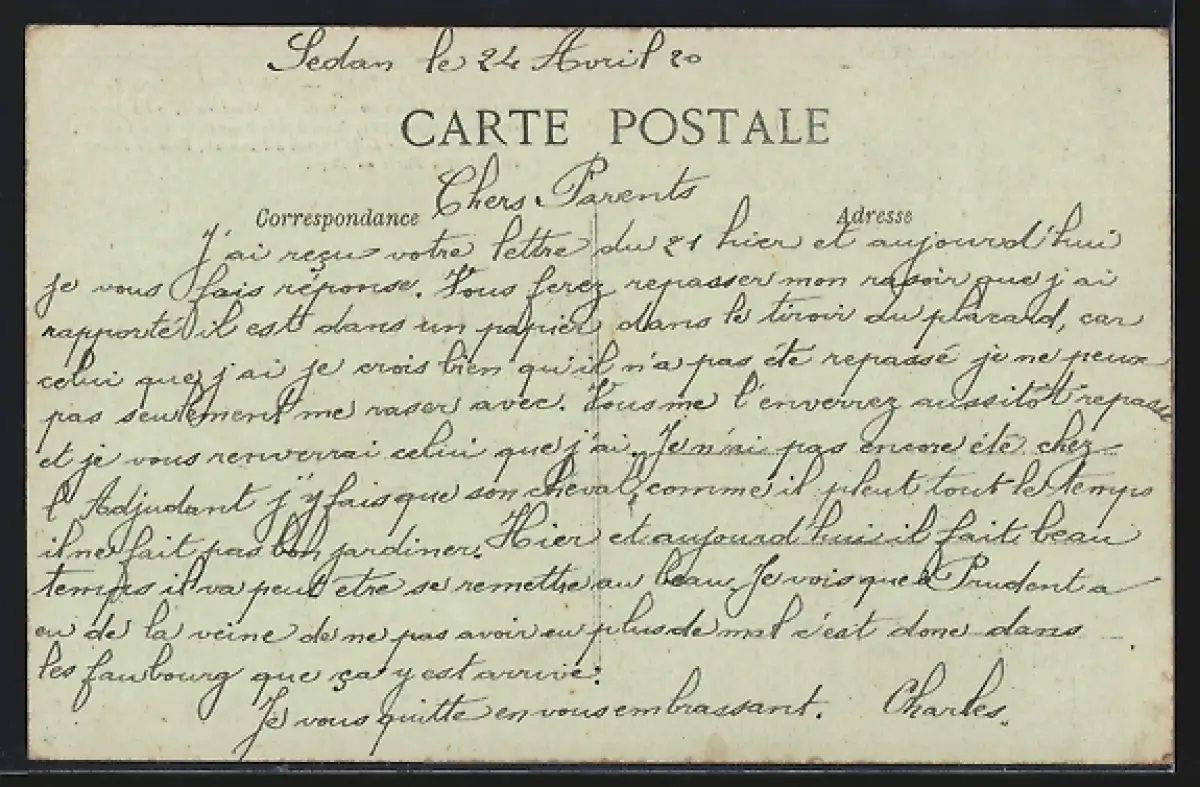 Sedan le 24 Avril 20
CARTE POSTALE
Chers Parents
Correspondance
Adresse
J'ai reçu votre lettre du 21 hier et aujourd'hui
je vous fais réponse. Vous ferez repasser mon rasoir que j'ai
rapporté il est dans un papier dans le tiroir du placard, car
celui que j'ai je crois bien qu'il n'a pas été repassé je ne peux
pas seulement me raser avec. Vous me l'enverrez aussitôt repassé
et je vous renverrai celui que j'ai. Je n'ai pas encore été chez
l'Adjudant j'y fais que son cheval, comme il pleut tout le temps
il ne fait pas bon jardiner. Hier et aujourd'hui il fait beau
temps il va peut etre se remettre au beau. Je vois que Prudent a
eu de la veine de ne pas avoir eu plus de mal c'est donc dans
les faubourg que ça y est arrivé.
Je vous quitte en vous embrassant. Charles.